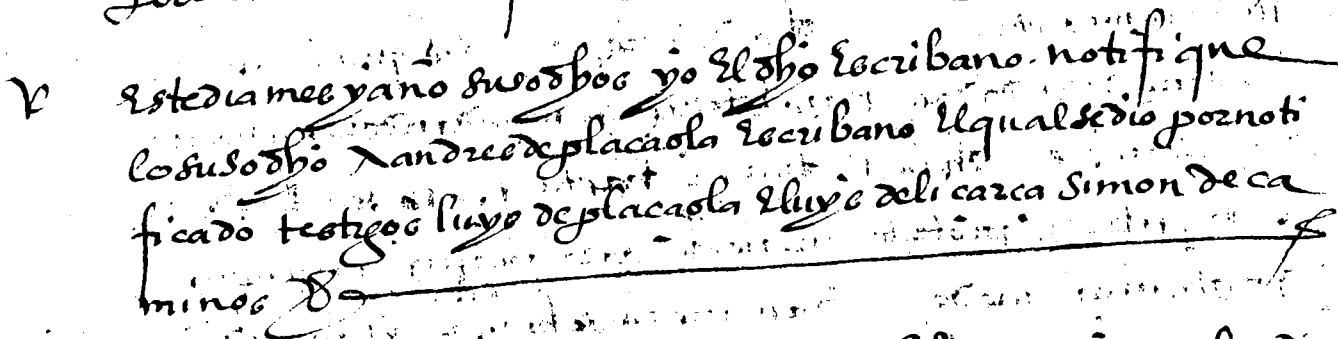 este dia mes y año susodhos yo el dho escribano notifique
lo susodho a andres de placaola escribano el qual se dio por noti
ficado testigos luys de placaola e luys de licarca simon de ca
minos